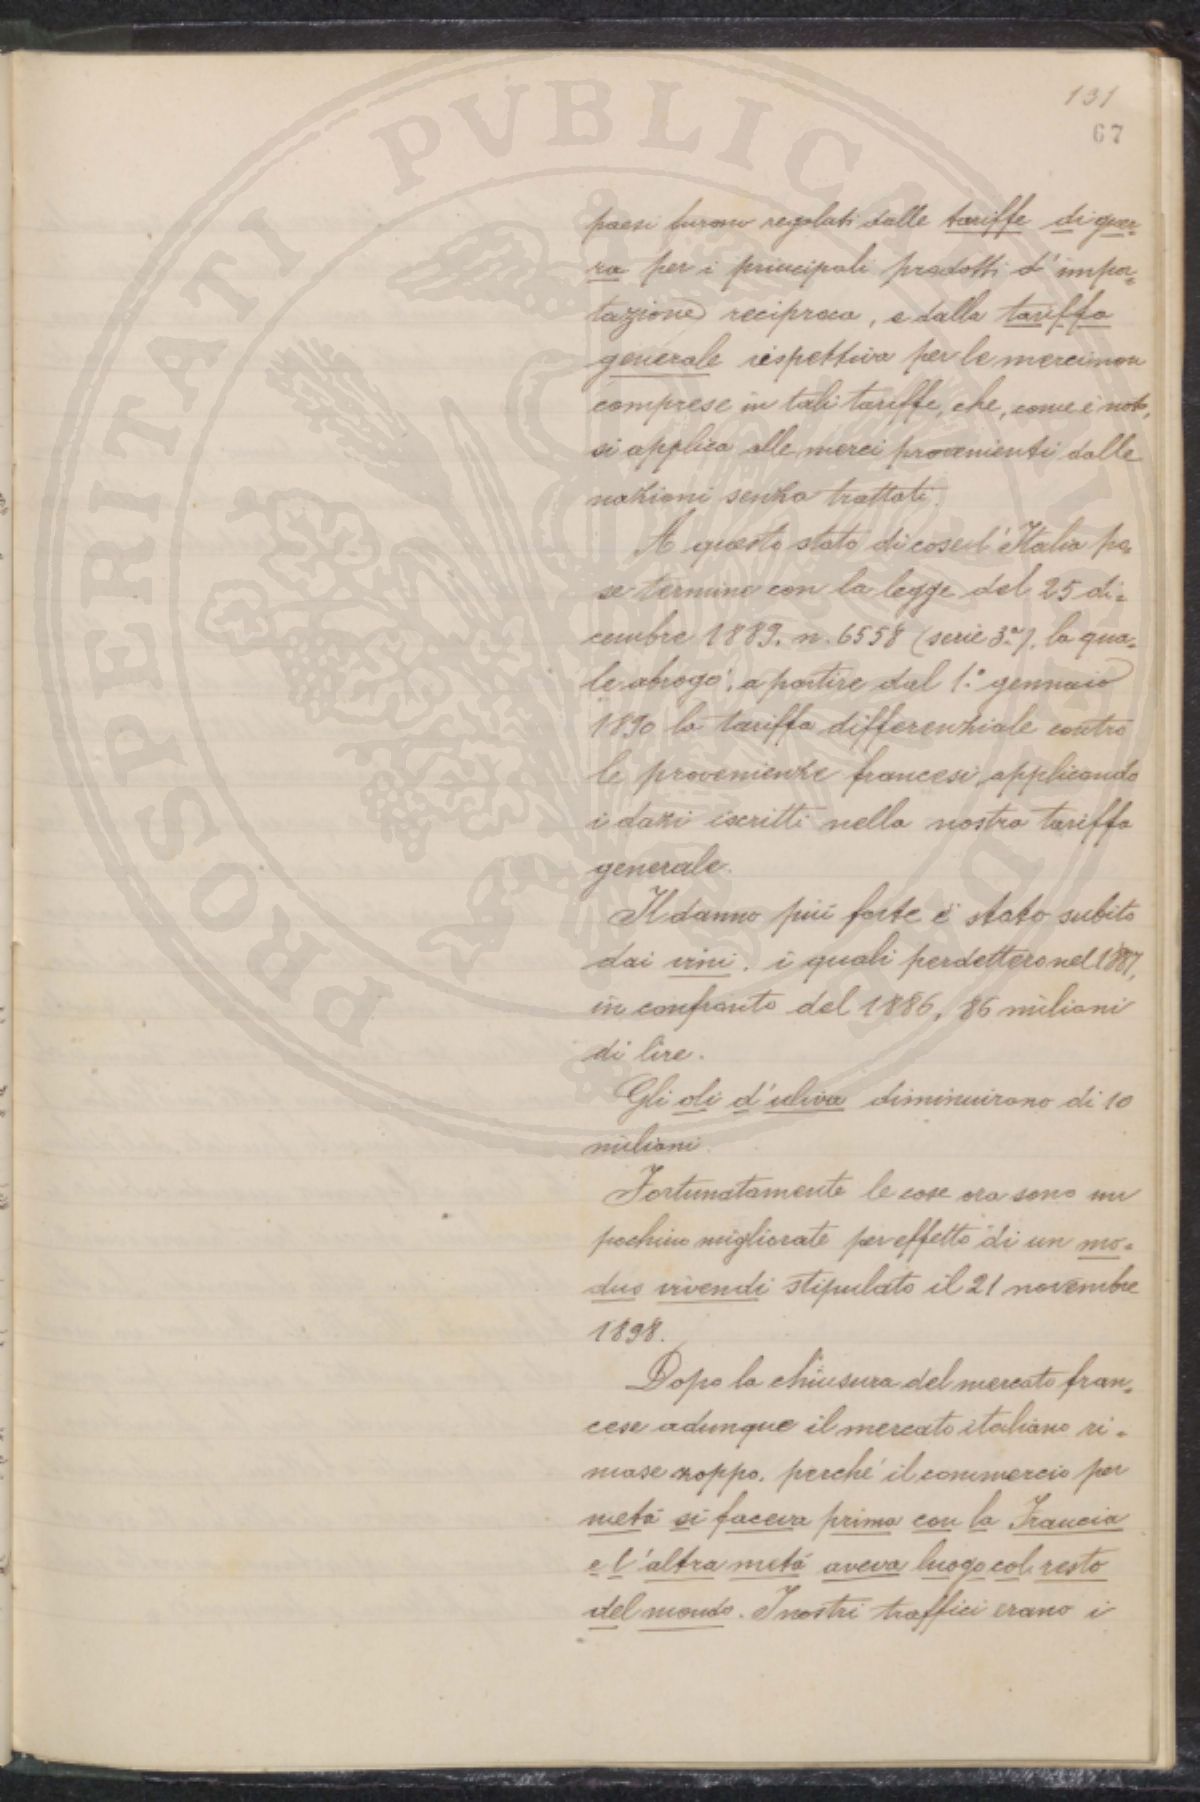 131
67
PROSPERITATI PVBLICAE
paesi furono regolati dalle tariffe di guer-
ra per i principali prodotti d'impor=
tazione reciproca, e dalla tariffa
generale rispettiva per le merci non
comprese in tali tariffe, che, come è noto,
si applica alle merci provenienti dalle
nazioni senza trattati.
A questo stato di cose l'Italia po-
se termine con la legge del 25 di=
cembre 1889. n. 6558 (serie 3.ª), la qua-
le abrogò, a partire dal 1.° gennaio
1890 la tariffa differenziale contro
le provenienze francesi applicando
i dazi iscritti nella nostra tariffa
generale.
Il danno più forte è stato subito
dai vini, i quali perdettero nel 1887,
in confronto del 1886, 86 milioni
di lire.
Gli oli d'uliva diminuirono di 10
milioni.
Fortunatamente le cose ora sono un
pochino migliorate per effetto di un mo=
dus vivendi stipulato il 21 novembre
1898.
Dopo la chiusura del mercato fran=
cese adunque il mercato italiano ri=
mase zoppo, perché il commercio per
metà si faceva prima con la Francia
e l'altra metà aveva luogo col resto
del mondo. I nostri traffici erano i